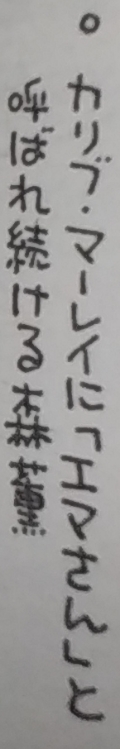 。カリブ・マーレイに「エマさん」と
呼ばれ続ける森薫